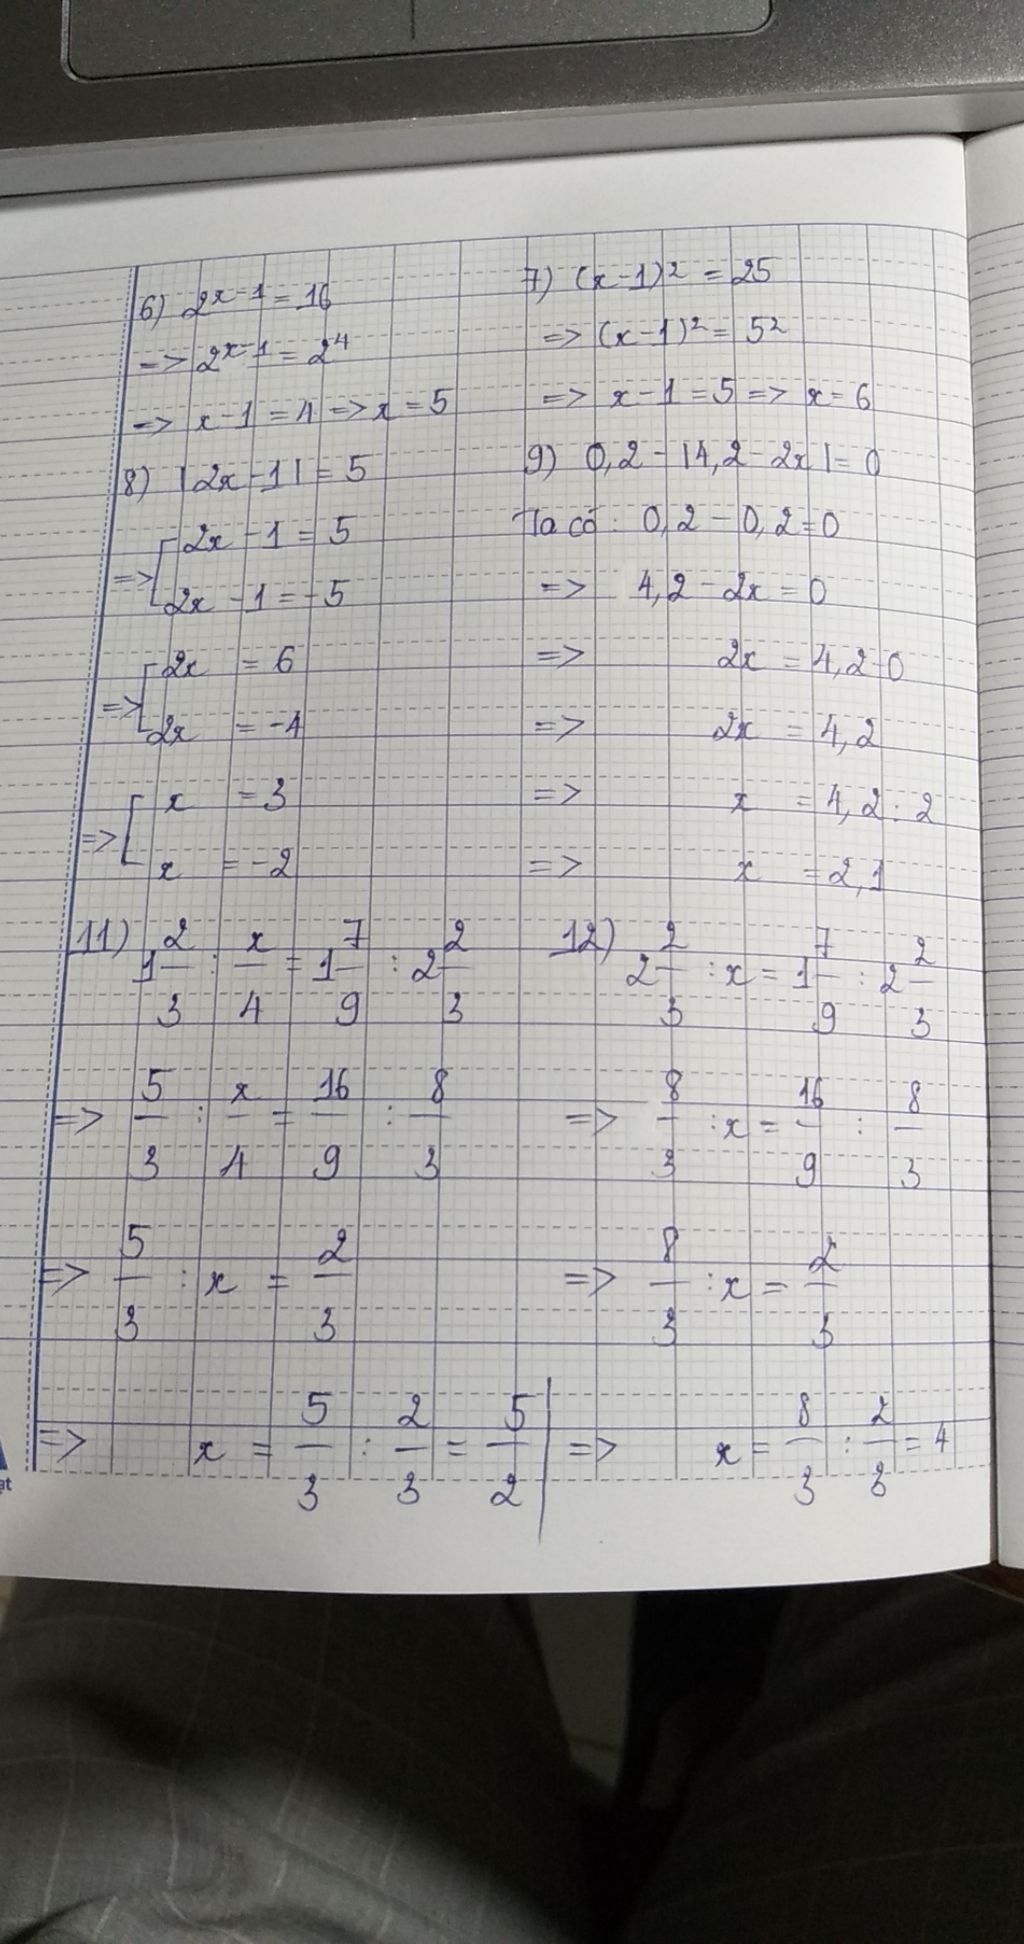 6) 2^{x-1} = 16
=> 2^{x-1} = 2^4
=> x-1 = 4 => x = 5
7) (x-1)² = 25
=> (x-1)² = 5²
=> x-1 = 5 => x = 6
8) |2x-1| = 5
=> [ 2x-1 = 5
2x-1 = -5
=> [ 2x = 6
2x = -4
=> [ x = 3
x = -2
9) 0,2 - |4,2-2x| = 0
Ta có: 0,2-0,2=0
=> 4,2-2x = 0
=> 2x = 4,2-0
=> 2x = 4,2
=> x = 4,2 : 2
=> x = 2,1
11) 1 2/3 : x/4 = 1 7/9 : 2 2/3
=> 5/3 : x/4 = 16/9 : 8/3
=> 5/3 : x = 2/3
=> x = 5/3 : 2/3 = 5/2
12) 2 2/3 : x = 1 7/9 : 2 2/3
=> 8/3 : x = 16/9 : 8/3
=> 8/3 : x = 2/3
=> x = 8/3 : 2/3 = 4